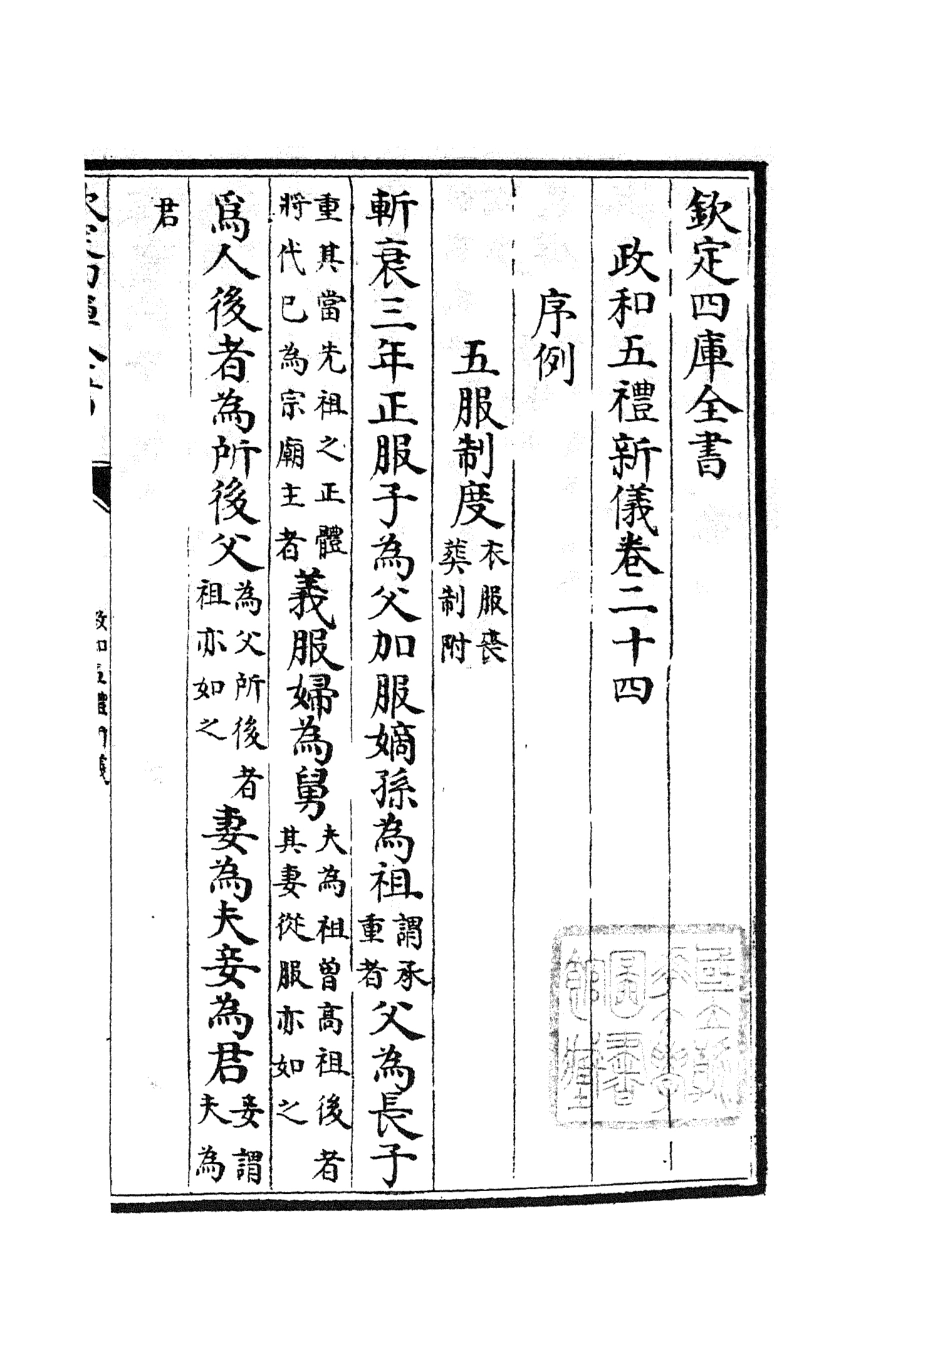 欽定四庫全書
政和五禮新儀卷二十四
序例
五服制度衣服喪葬制附
斬衰三年正服子為父加服嫡孫為祖謂承重者父為長子
重其當先祖之正體將代已為宗廟主者義服婦為舅夫為祖曾高祖後者其妻從服亦如之
爲人後者為所後父為父所後者祖亦如之妻為夫妾為君妾謂夫為
君
國立浙
江大學
圖書
館藏